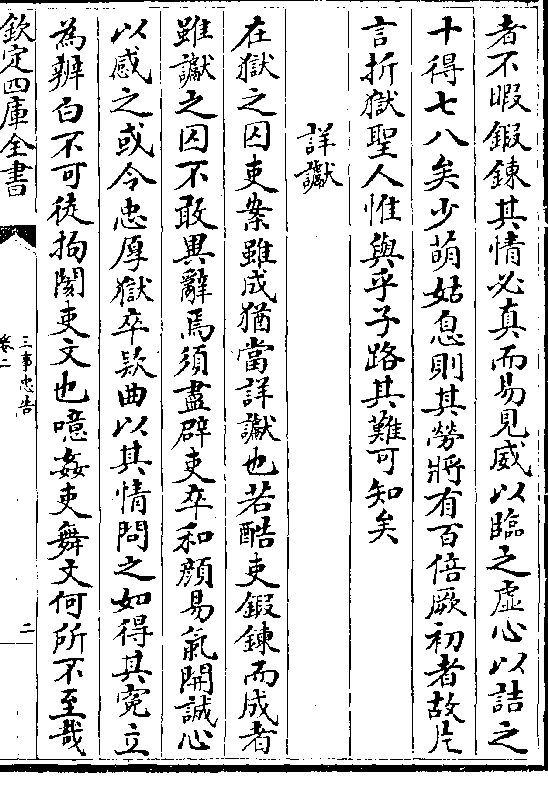 者不暇鍛鍊其情必真而易見威以臨之虚心以詰之
十得七八矣少萌姑息則其勞將有百倍厥初者故片
言折獄聖人惟與乎子路其難可知矣
詳讞
在獄之囚吏案雖成猶當詳讞也若酷吏鍛鍊而成者
雖讞之囚不敢異辭焉須盡辟吏卒和顔易氣開誠心
以感之或令忠厚獄卒欵曲以其情問之如得其寃立
為辨白不可徒拘閡吏文也噫姦吏舞文何所不至哉
欽定四庫全書
三事忠告
卷二
二